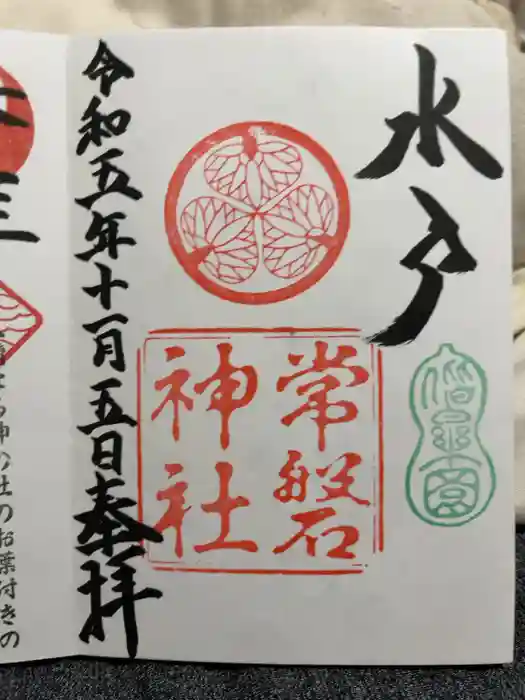 水戸
偕楽園
常磐
神社
令和五年十一月五日奉拝
三
神の社のお葉付きの